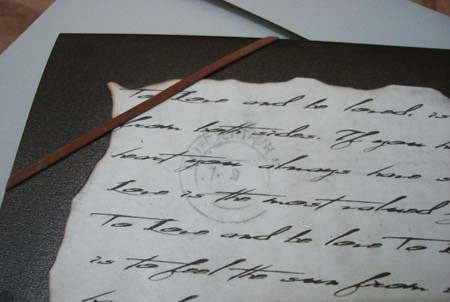 To Love and be loved, is
from both sides. If you h
heart you always have s
Love is the most valued
To Love and be love To L
is to feel the sun from